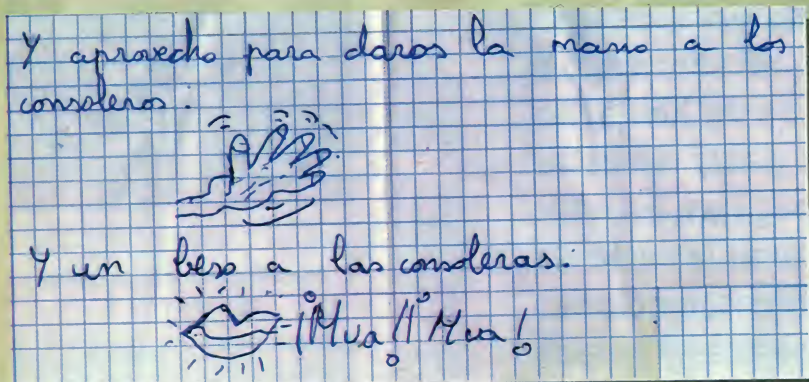 Y aprovecho para daros la mano a los
consoleros:
Y un beso a las consoleras:
¡Mua! ¡Mua!